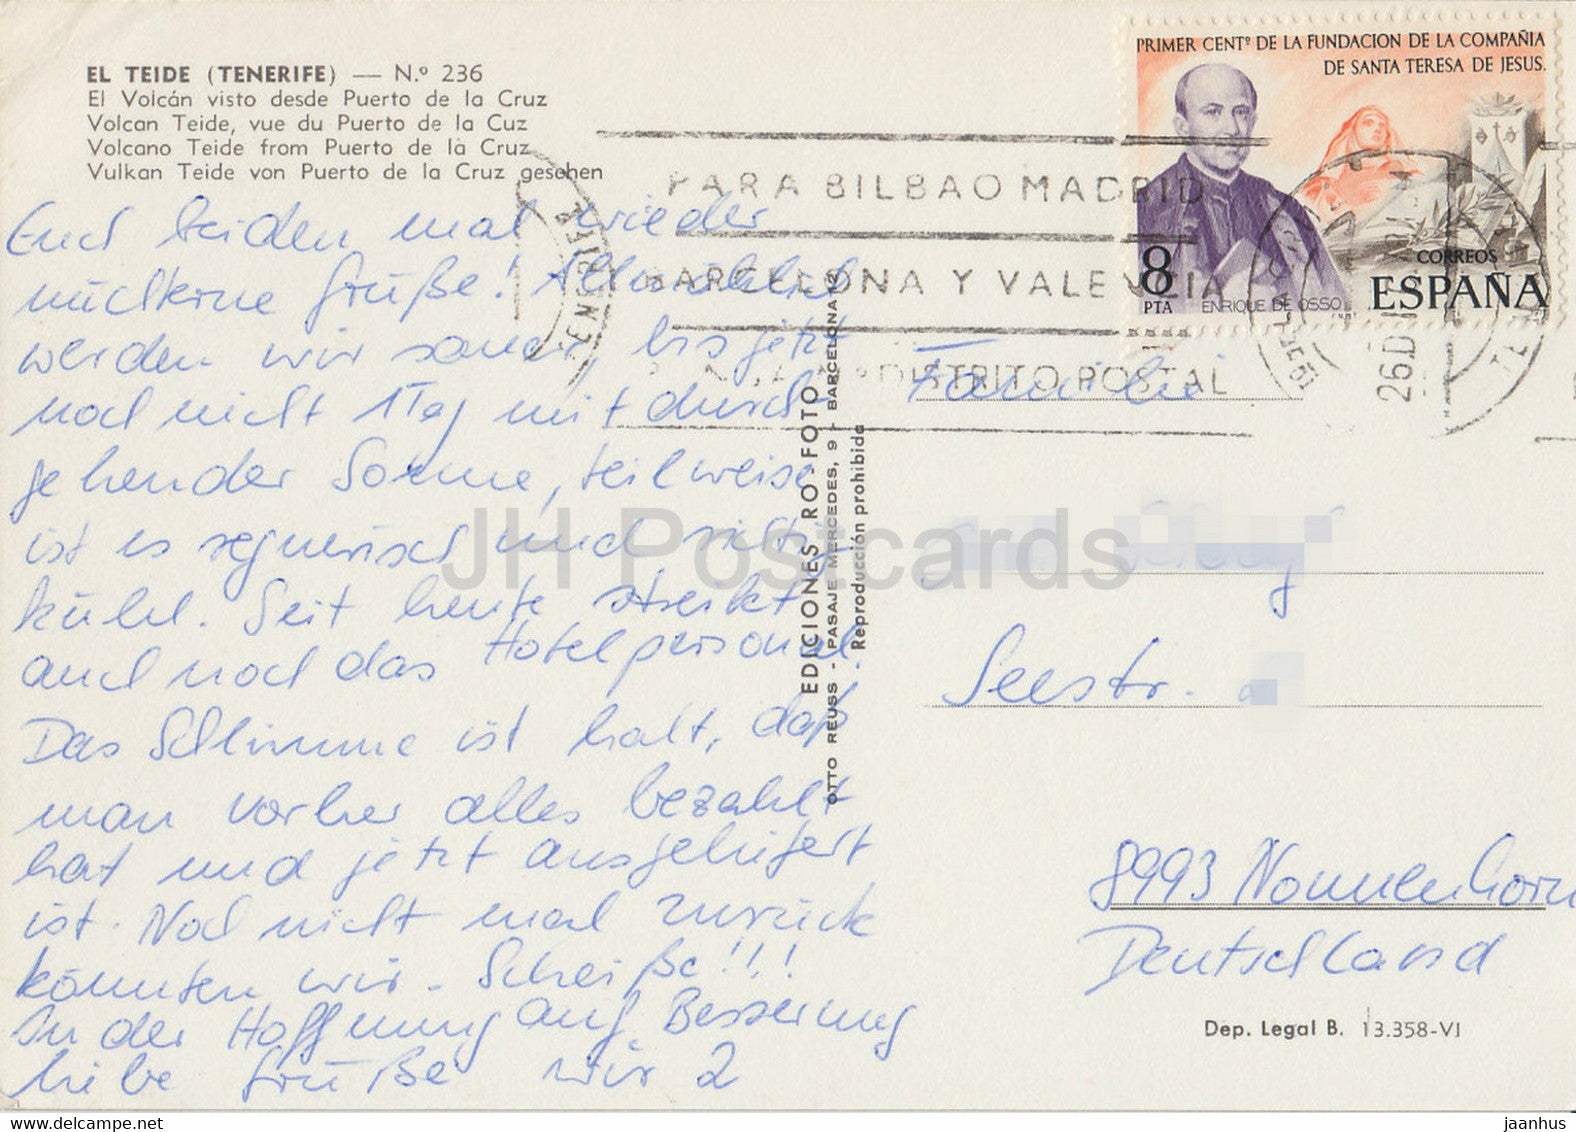 EL TEIDE (TENERIFE) — N.º 236
El Volcán visto desde Puerto de la Cruz
Volcan Teide, vue du Puerto de la Cuz
Volcano Teide from Puerto de la Cruz
Vulkan Teide von Puerto de la Cruz gesehen
Euch beiden mal wieder
nüchterne Grüße! Allmählich
werden wir sauer, bis jetzt
noch nicht 1 Tag mit durch-
gehender Sonne, teilweise
ist es regnerisch und richtig
kühl. Seit heute streikt
auch noch das Hotelpersonal.
Das Schlimme ist halt, daß
man vorher alles bezahlt
hat und jetzt ausgeliefert
ist. Noch nicht mal zurück
könnten wir. Scheiße!!!
In der Hoffnung auf Besserung
liebe Grüße wir 2
EDICIONES RO-FOTO
OTTO REUSS - PASAJE MERCEDES, 9 - BARCELONA-2
Reproducción prohibida
PRIMER CENTº DE LA FUNDACION DE LA COMPAÑIA
DE SANTA TERESA DE JESUS.
8
PTA
ENRIQUE DE OSSO
CORREOS
ESPAÑA
PARA BILBAO MADRID
BARCELONA Y VALENCIA
DISTRITO POSTAL
26 D
Familie
Seestr.
8993 Nonnenhorn
Deutschland
Dep. Legal B. 13.358-VI
JH Postcards
www.delcampe.net
jaanhus